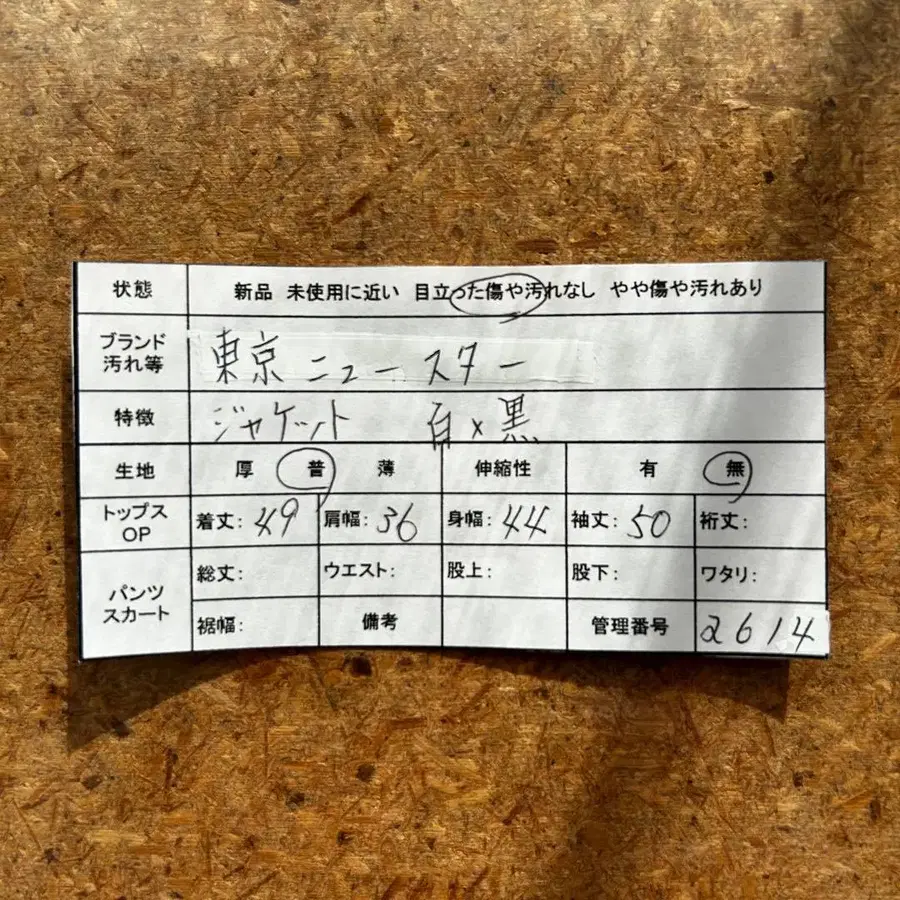 状態 新品 未使用に近い 目立った傷や汚れなし やや傷や汚れあり
ブランド
汚れ等 東京ニュースター
特徴 ジャケット 白×黒
生地 厚 普 薄 伸縮性 有 無
トップス
OP 着丈:49 肩幅:36 身幅:44 袖丈:50 裄丈:
パンツ
スカート 総丈: ウエスト: 股上: 股下: ワタリ:
裾幅: 備考 管理番号 2614